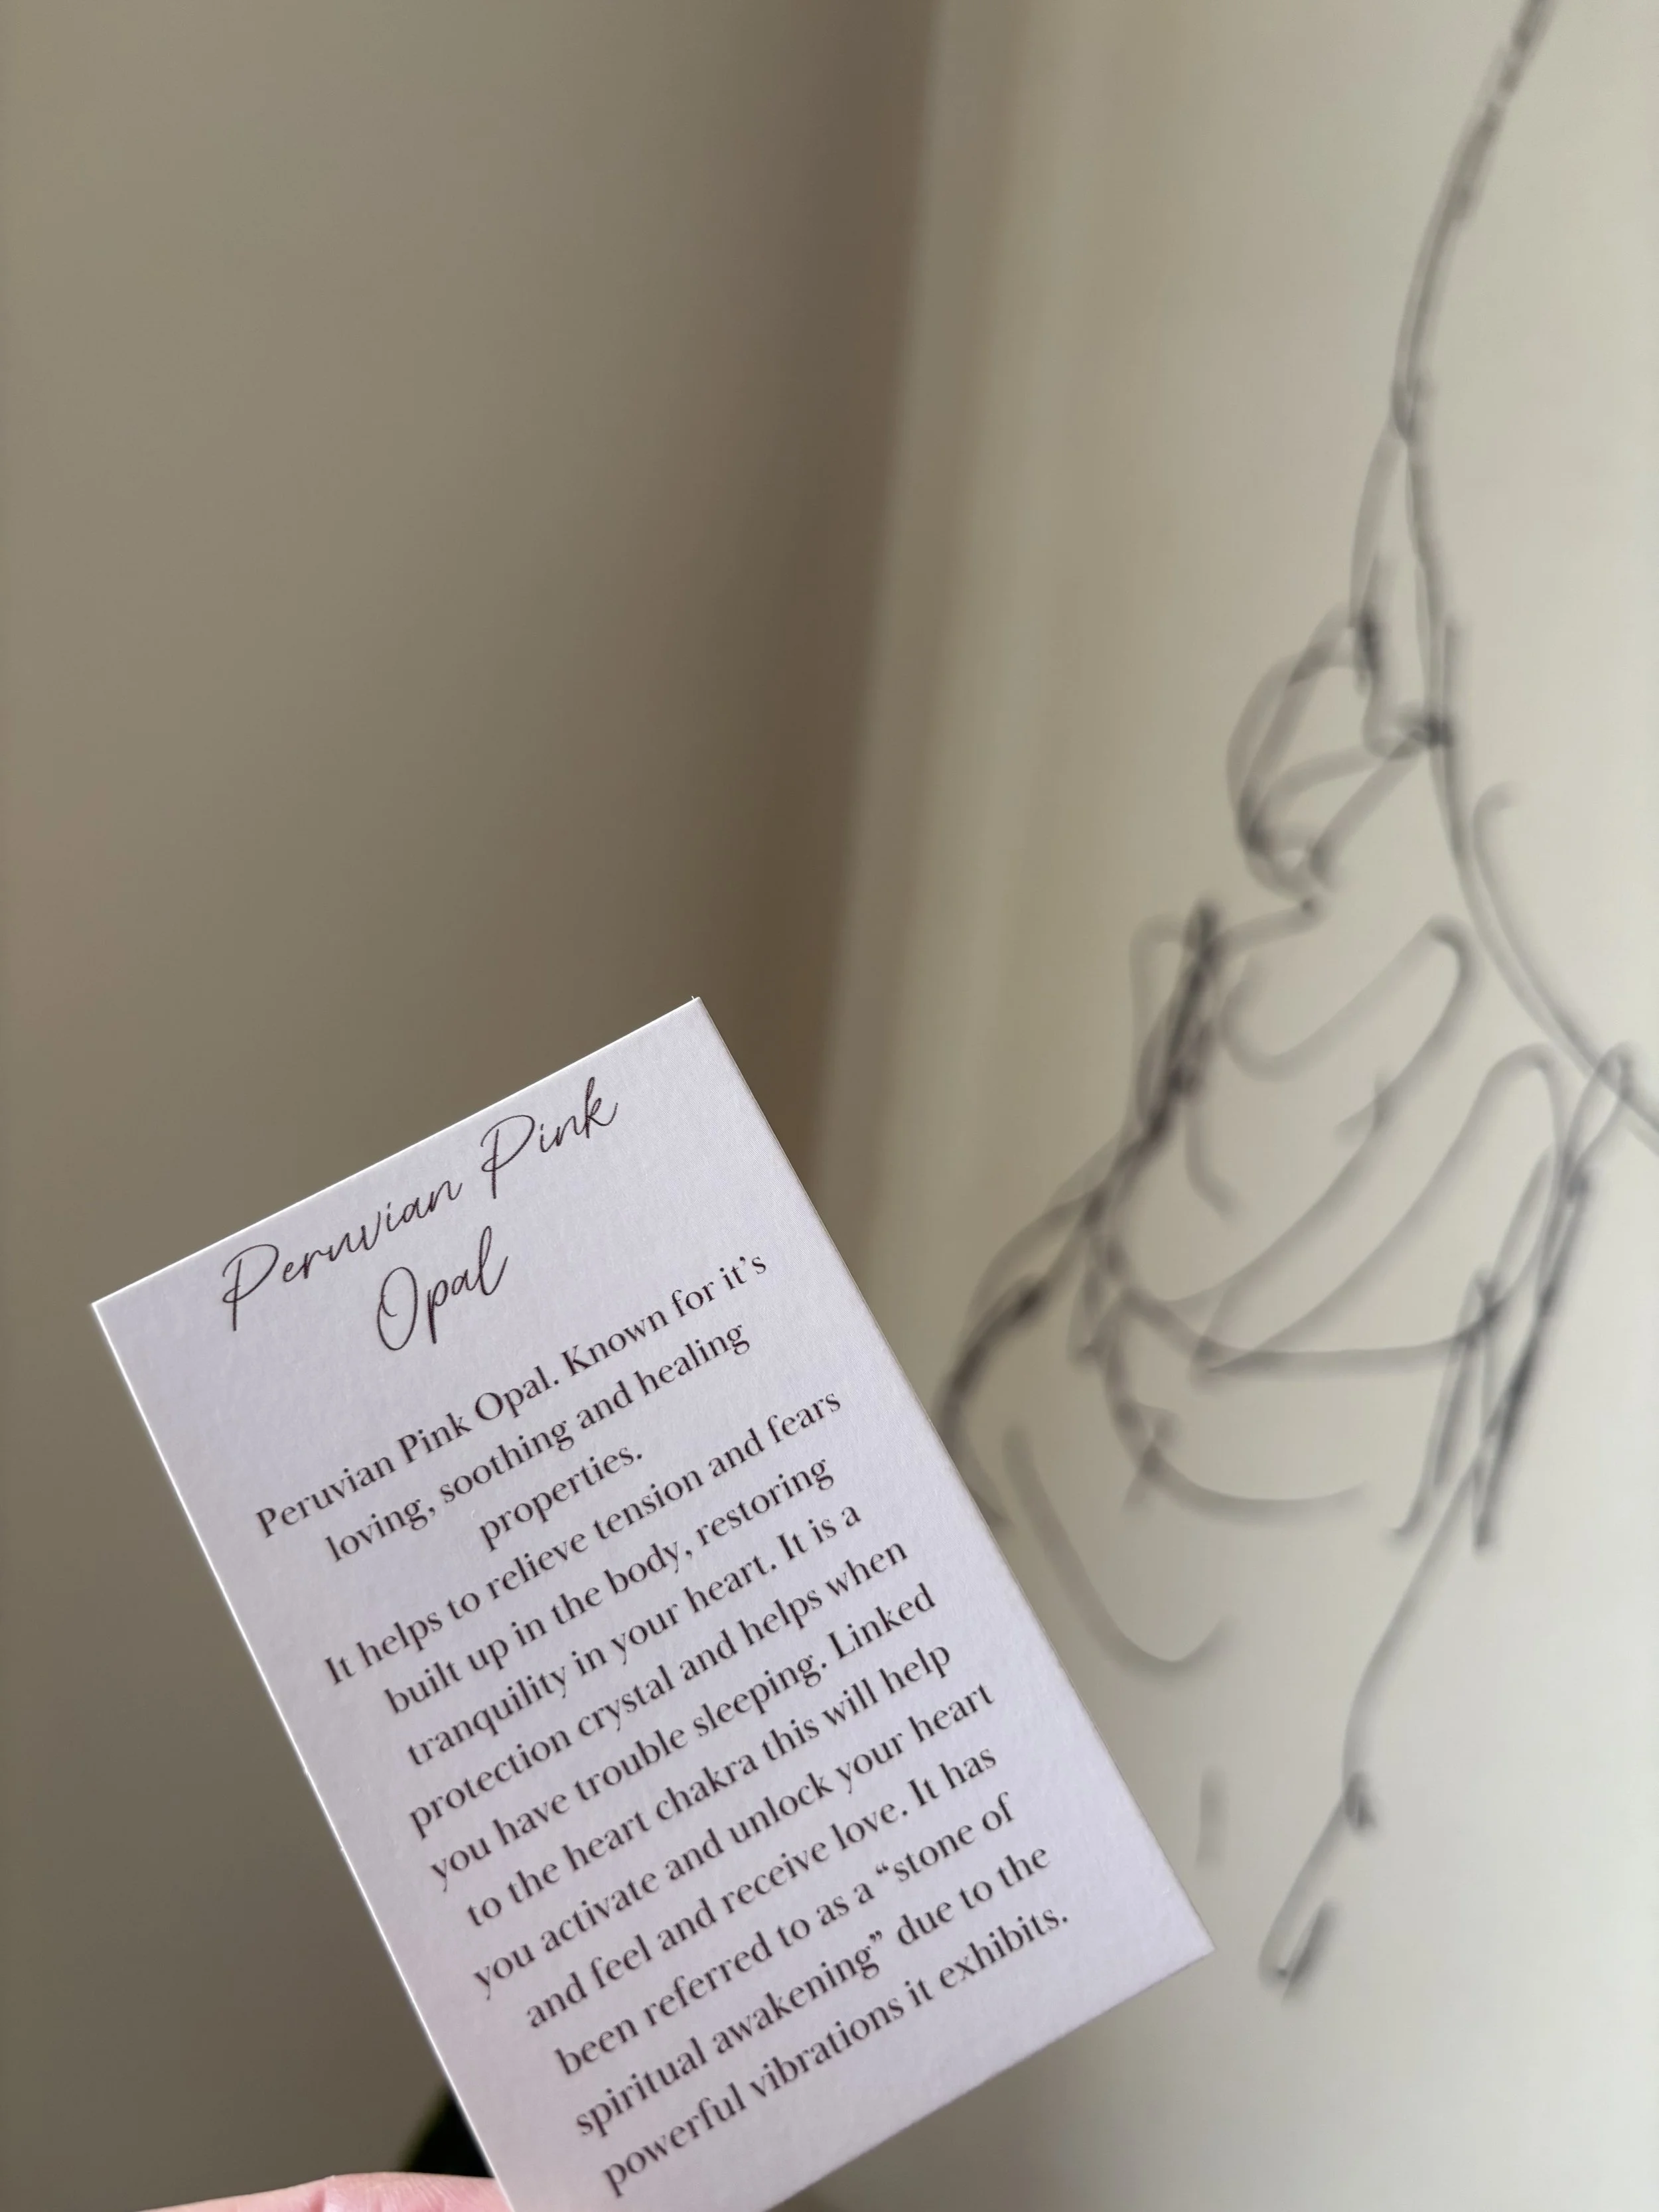 Peruvian Pink
Opal
Peruvian Pink Opal. Known for it's
loving, soothing and healing
properties.
It helps to relieve tension and fears
built up in the body, restoring
tranquility in your heart. It is a
protection crystal and helps when
you have trouble sleeping. Linked
to the heart chakra this will help
you activate and unlock your heart
and feel and receive love. It has
been referred to as a “stone of
spiritual awakening” due to the
powerful vibrations it exhibits.